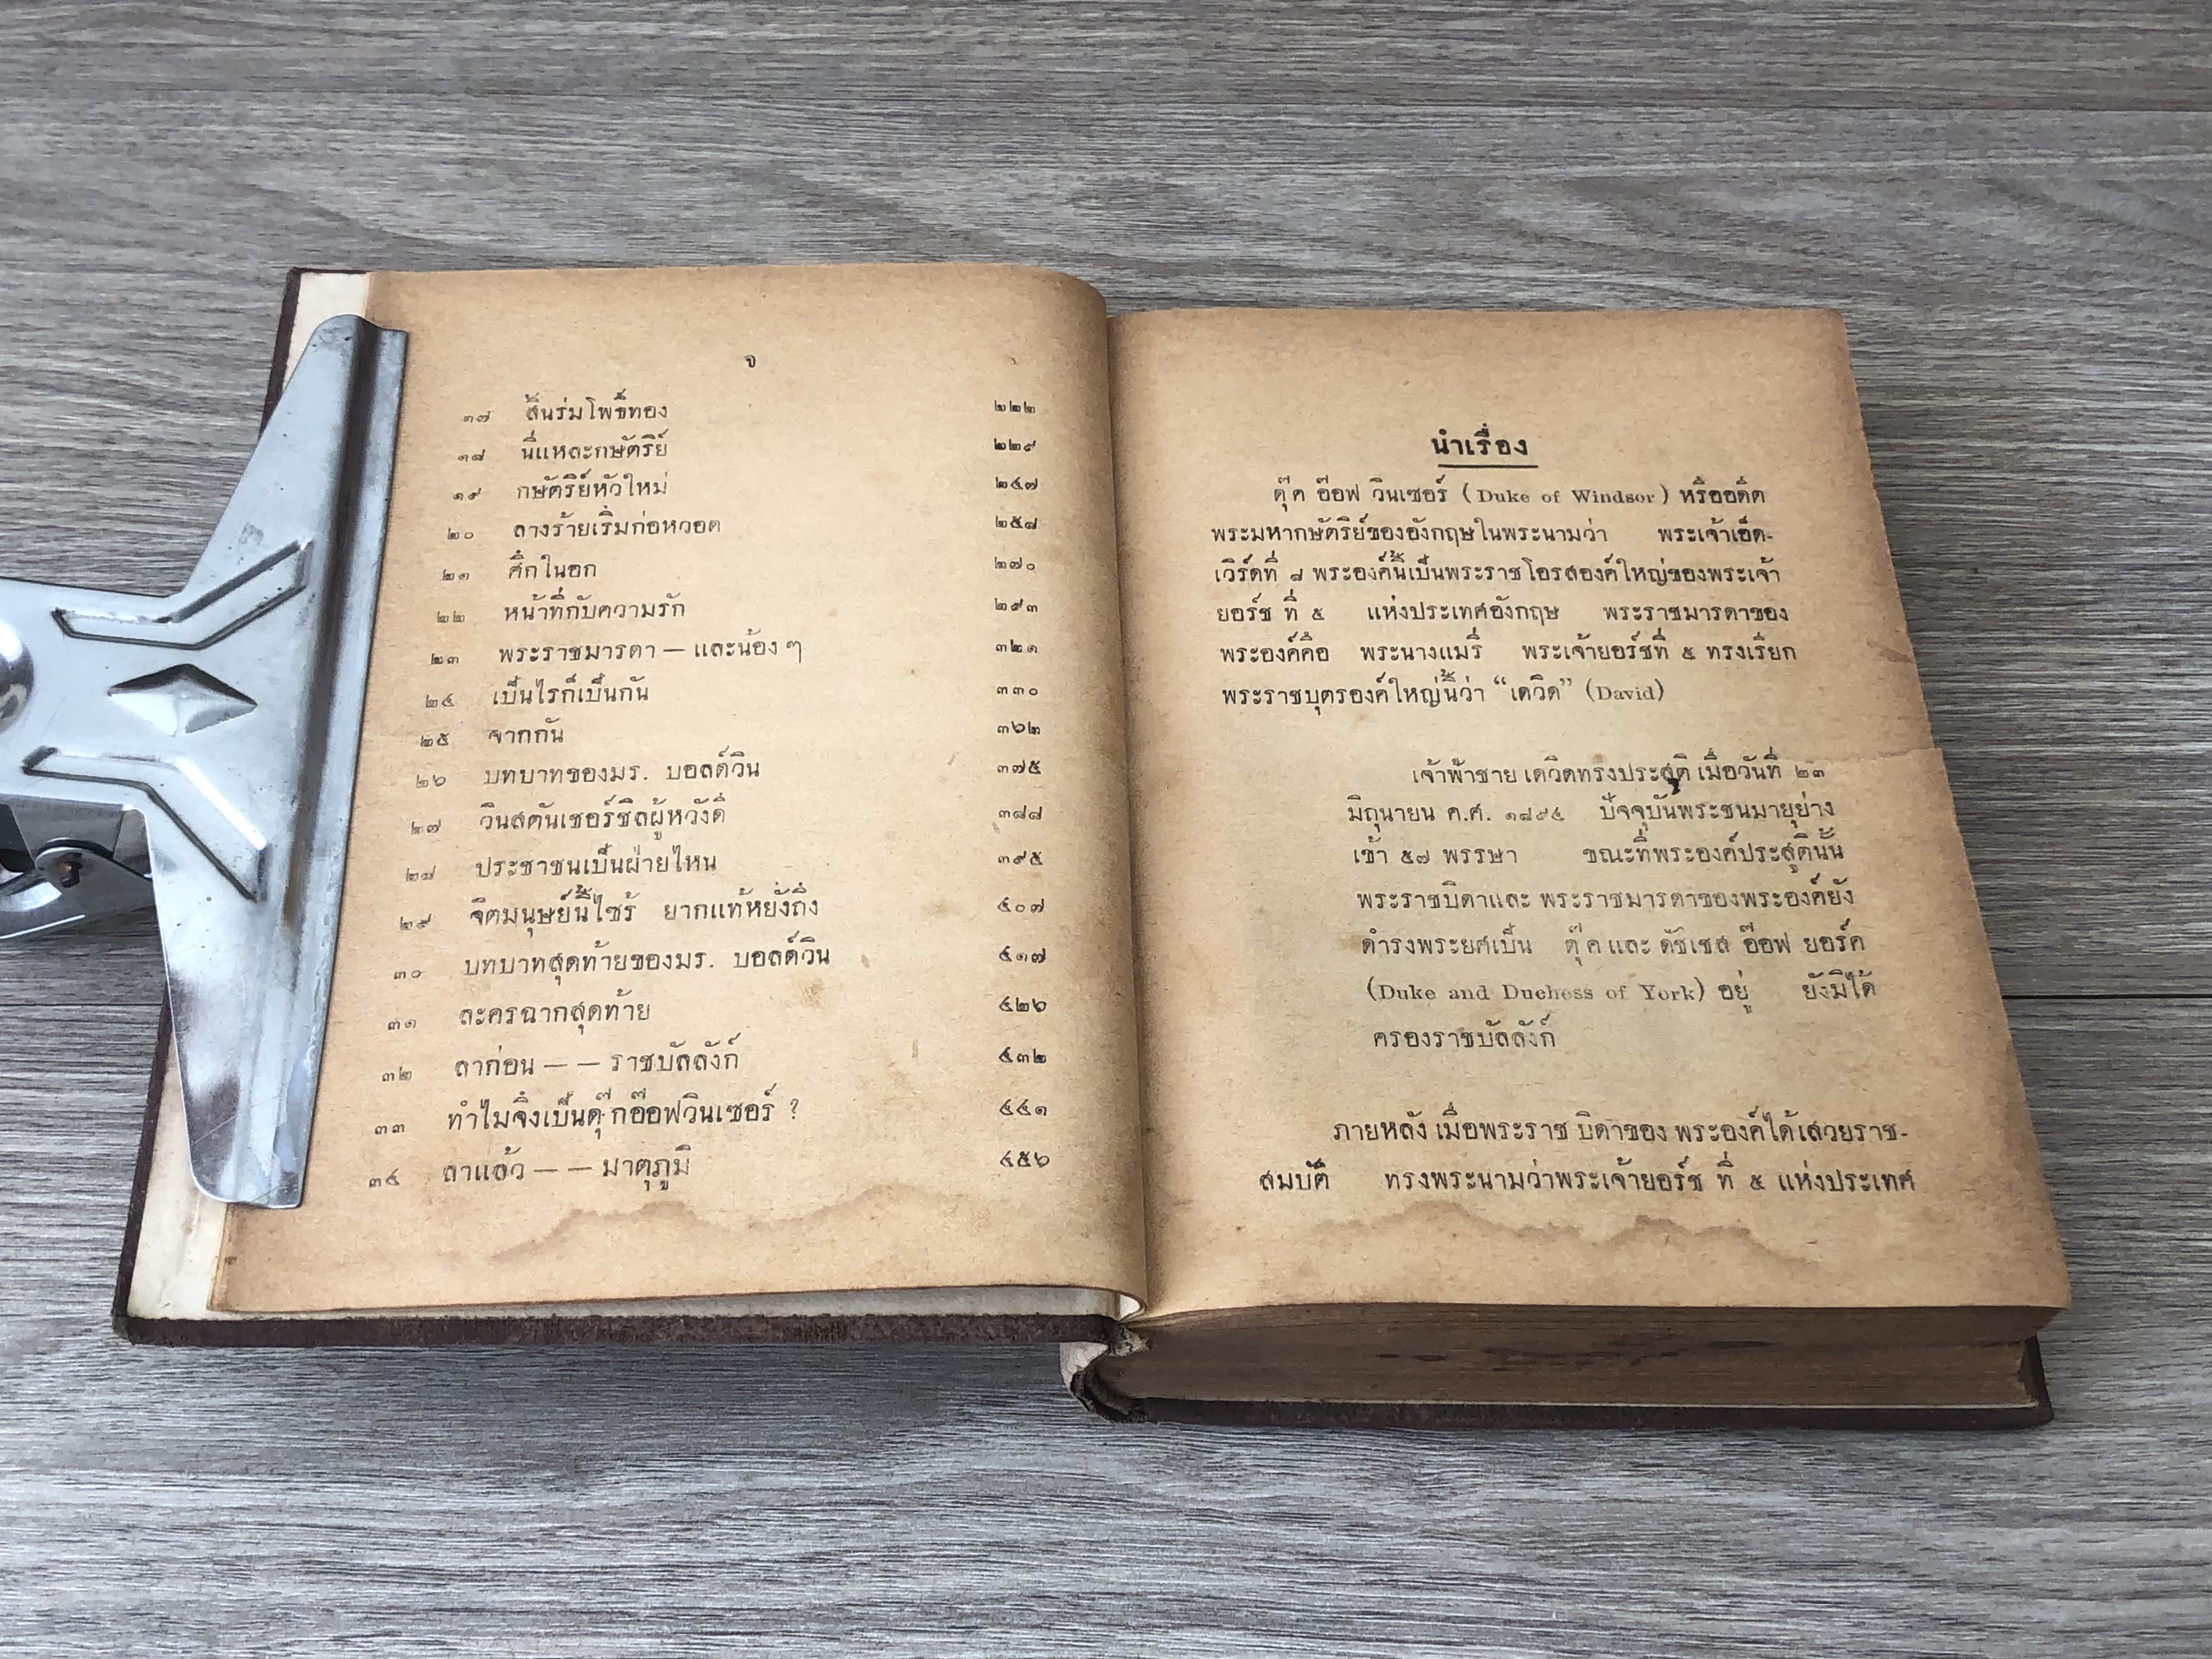 จ
๑๗ สิ้นร่มโพธิ์ทอง ๒๒๒
๑๘ นี่แหละกษัตริย์ ๒๒๙
๑๙ กษัตริย์หัวใหม่ ๒๔๗
๒๐ ลางร้ายเริ่มก่อหวอด ๒๕๘
๒๑ ศึกในอก ๒๗๐
๒๒ หน้าที่กับความรัก ๒๙๓
๒๓ พระราชมารดา — และน้อง ๆ ๓๒๑
๒๔ เป็นไรก็เป็นกัน ๓๓๐
๒๕ จากกัน ๓๖๒
๒๖ บทบาทของมร. บอลด์วิน ๓๗๕
๒๗ วินสตันเชอร์ชิลผู้หวังดี ๓๘๘
๒๘ ประชาชนเป็นฝ่ายไหน ๓๙๕
๒๙ จิตมนุษย์นี้ไซร้ ยากแท้หยั่งถึง ๔๐๗
๓๐ บทบาทสุดท้ายของมร. บอลด์วิน ๔๑๗
๓๑ ละครฉากสุดท้าย ๔๒๖
๓๒ ลาก่อน — — ราชบัลลังก์ ๔๓๒
๓๓ ทำไมจึงเป็นดุ๊กอ๊อฟวินเซอร์ ? ๔๔๑
๓๔ ลาแล้ว — — มาตุภูมิ ๔๕๖
นำเรื่อง
ดุ๊ค อ๊อฟ วินเซอร์ (Duke of Windsor) หรืออดีต
พระมหากษัตริย์ของอังกฤษในพระนามว่า พระเจ้าเอ็ด-
เวิร์ดที่ ๘ พระองค์นี้เป็นพระราชโอรสองค์ใหญ่ของพระเจ้า
ยอร์ช ที่ ๕ แห่งประเทศอังกฤษ พระราชมารดาของ
พระองค์คือ พระนางแมรี่ พระเจ้ายอร์ชที่ ๕ ทรงเรียก
พระราชบุตรองค์ใหญ่นี้ว่า “เดวิด” (David)
เจ้าฟ้าชาย เดวิดทรงประสูติ เมื่อวันที่ ๒๓
มิถุนายน ค.ศ. ๑๘๙๔ ปัจจุบันพระชนมายุย่าง
เข้า ๕๗ พรรษา ขณะที่พระองค์ประสูตินั้น
พระราชบิดาและ พระราชมารดาของพระองค์ยัง
ดำรงพระยศเป็น ดุ๊ค และ ดัชเชส อ๊อฟ ยอร์ค
(Duke and Duchess of York) อยู่ ยังมิได้
ครองราชบัลลังก์
ภายหลัง เมื่อพระราช บิดาของ พระองค์ได้เสวยราช-
สมบัติ ทรงพระนามว่าพระเจ้ายอร์ช ที่ ๕ แห่งประเทศ